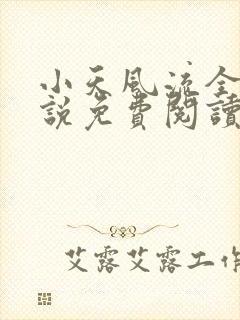 小天風流全
說免費閱讀
艾露艾露工作